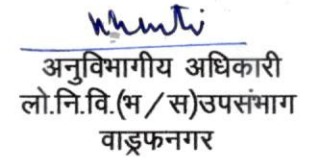 अनुविभागीय अधिकारी
लो.नि.वि.(भ/स)उपसंभाग
वाड्रफनगर